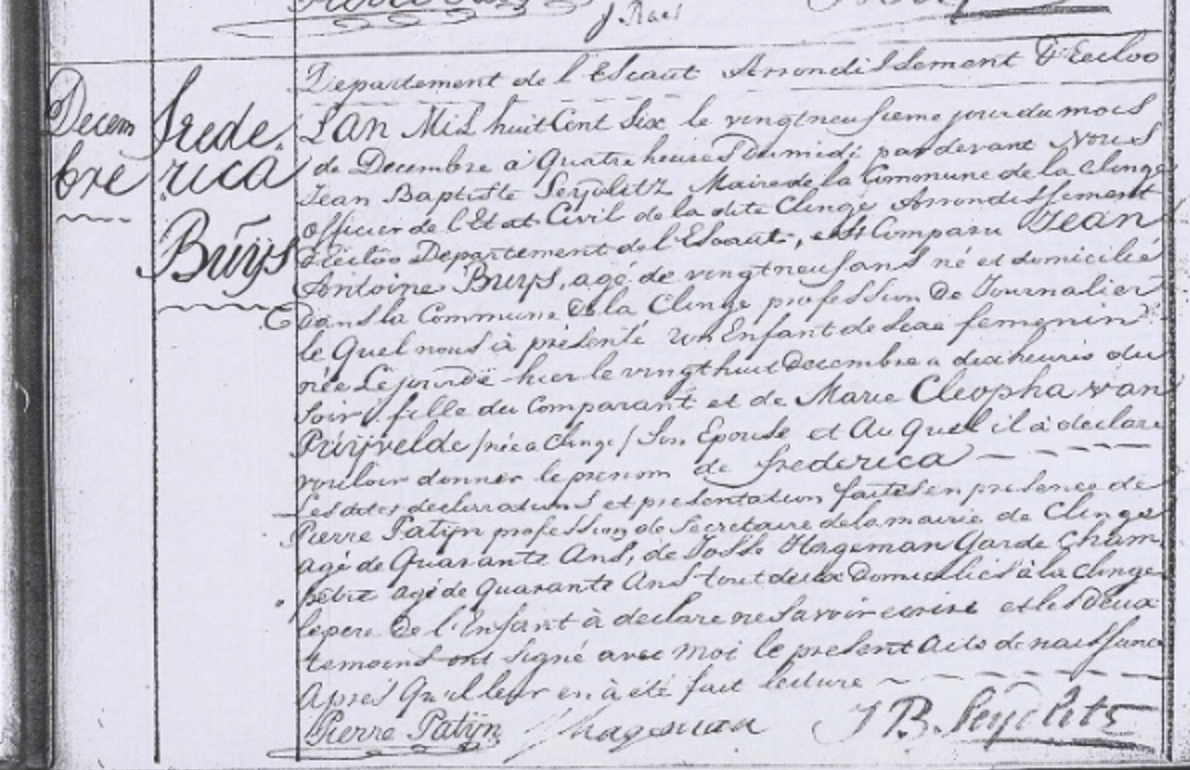 J Rael
Decem
bre
Frede.
rica
Buÿs
Departement de l'Escaut Arrondissement D'Eecloo
L'an Mil huit Cent Six le vingtneufieme jour du mois
de Decembre a Quatre heures Du midi par devant Nous
Jean Baptiste Seydlitz Maire de la Commune de la Clinge
officier de l'Etat Civil de la dite Clinge Arrondissement
d'Eecloo Departement de l'Escaut, est Comparu Jean
Antoine Buys, agé de vingtneuf ans né et domicilié
Dans la Commune de la Clinge profession de Journalier
le Quel nous à présenté un Enfant de sexe femenin
née Le jour de hier le vingt huit Decembre a dix heures du
Soir, fille du Comparant et de Marie Cleopha van
Puÿvelde /née a Clinge/ Son Epouse et Au Quel il à declare
vouloir donner le prenom de frederica
Les dites declarations et presentation faites en presence de
Pierre Patijn profession de Secretaire de la mairie de Clinge
agé de Quarante Ans, de Josse Hageman Garde Cham
petre agé de Quarante Ans tout deux Domicilies à la Clinge
le pere De l'Enfant à declare ne Savoir ecrire et les deux
temoins ont Signé avec Moi le present Acte de naissance
Après Qu'il leur en à été fait lecture
Pierre Patijn J hageman J B Seydlitz